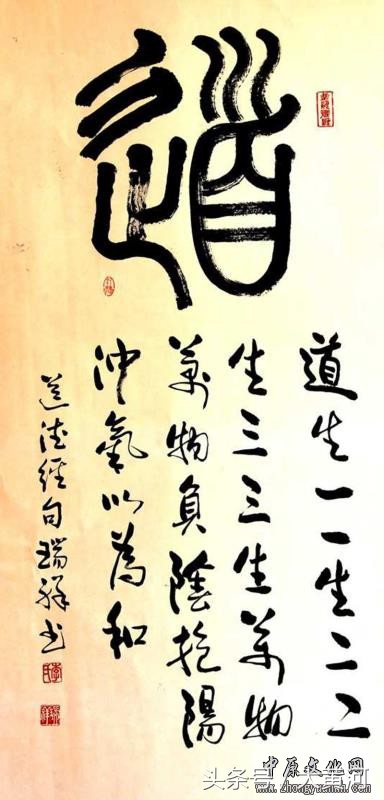 道
道生一一生二二
生三三生萬物
萬物負陰抱陽
沖氣以為和
道德經句瑞祥书
中原文化网
头条号/大黄河